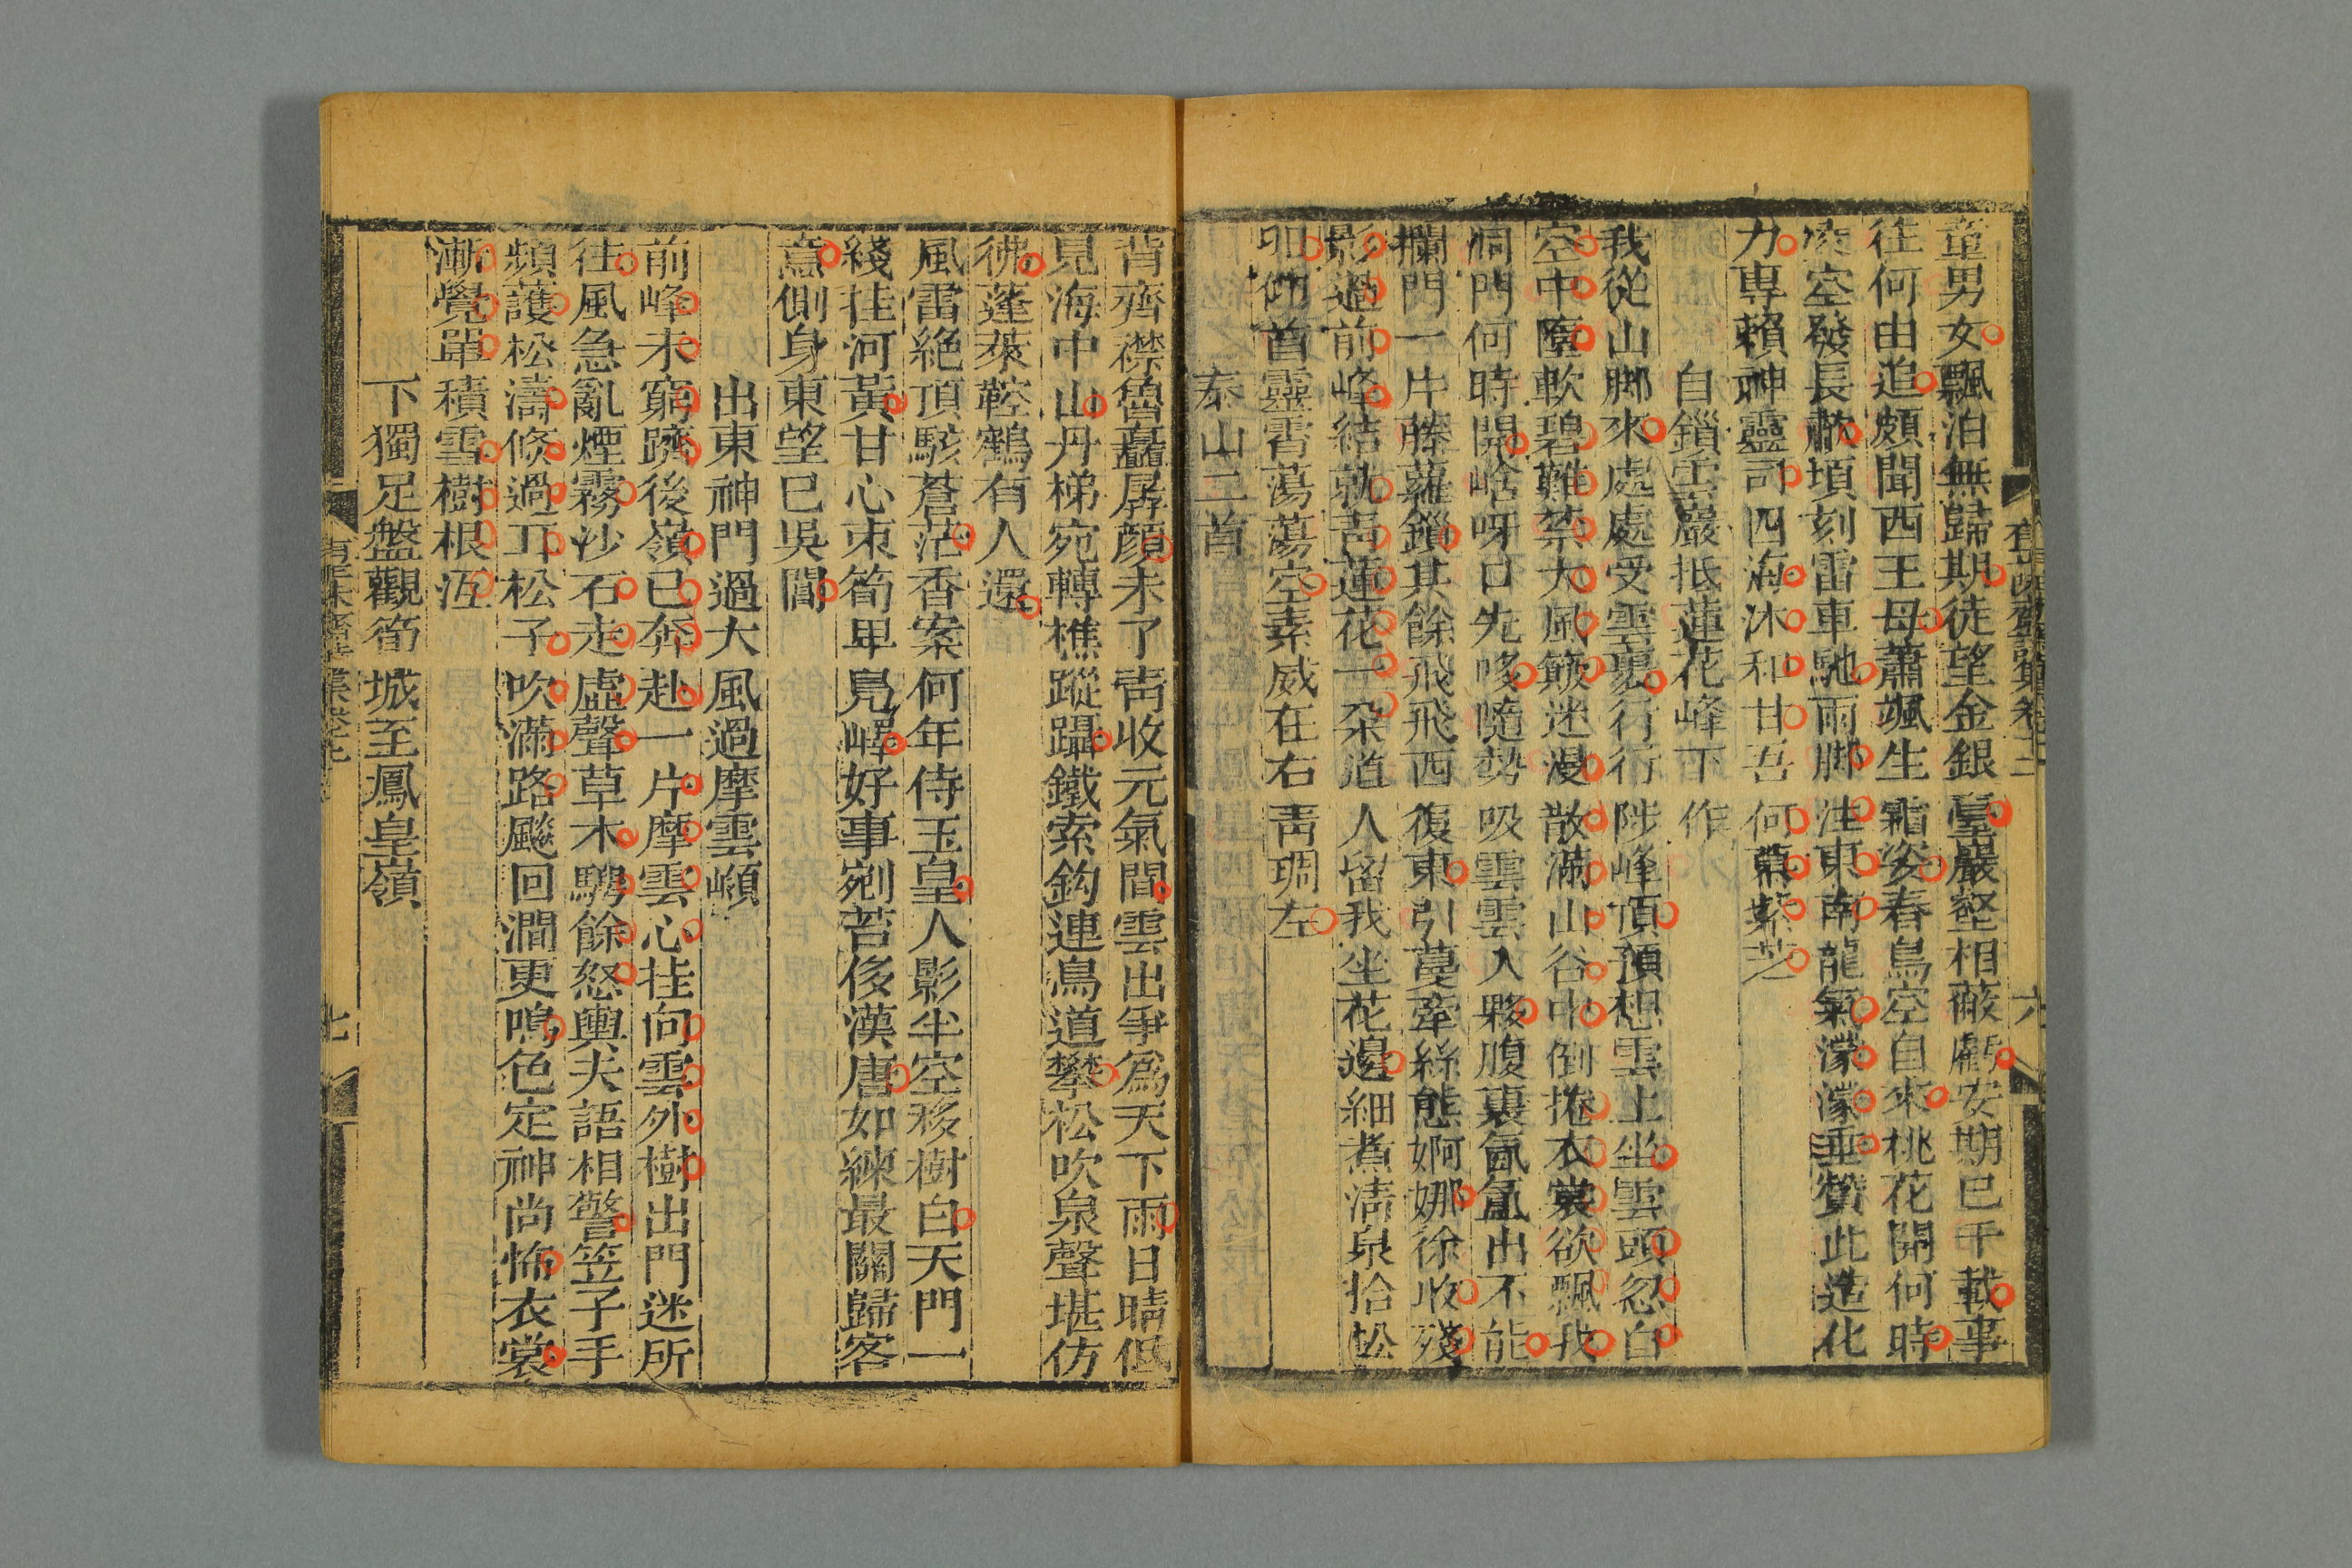 童男女飄泊無歸期徒望金銀臺巖壑相蔽虧安期已千載事
往何由追頗聞西王母蕭颯生霜姿春鳥空自來桃花開何時
凌空發長歎頃刻雷車馳雨脚注東南龍氣濛濛垂贊此造化
力專賴神靈司四海沐和甘吾何慕紫芝
自鎖雲巖抵蓮花峰下作
我從山脚來處處受雲裹行行陟峰頂預想雲上坐雲頭忽白
空中墮軟碧難禁大風簸迷漫散滿山谷中倒捲衣裳欲飄我
洞門何時開㟏呀口先哆隨勢吸雲雲入夥腹裏氤氳出不能
攔門一片藤蘿鎖其餘飛飛西復東引蔓牽絲態婀娜徐收殘
影過前峰結就靑蓮花一朶道人留我坐花邊細煮淸泉拾松
明仰首靈霄蕩蕩空素威在右靑琱左
泰山二首
六
背齊襟魯矗孱顏未了靑收元氣間雲出爭爲天下雨日晴低
見海中山丹梯宛轉樵蹤躡鐵索鉤連鳥道攀松吹泉聲堪仿
彿蓬萊鞚鶴有人還
風雷絶頂駭蒼茫香案何年侍玉皇人影半空移樹白天門一
綫挂河黃甘心束筍卑鳧嶧好事剜苔侈漢唐如練最關歸客
意側身東望已吳閶
出東神門過大風過摩雲嶺
前峰未窮躋後嶺已奔赴一片摩雲心挂向雲外樹出門迷所
往風急亂煙霧沙石走虛聲草木騁餘怒輿夫語相警笠子手
頻護松濤倐過耳松子吹滿路飈回澗更鳴色定神尚怖衣裳
漸覺單積雪樹根沍
下獨足盤觀筍城至鳳皇嶺
七